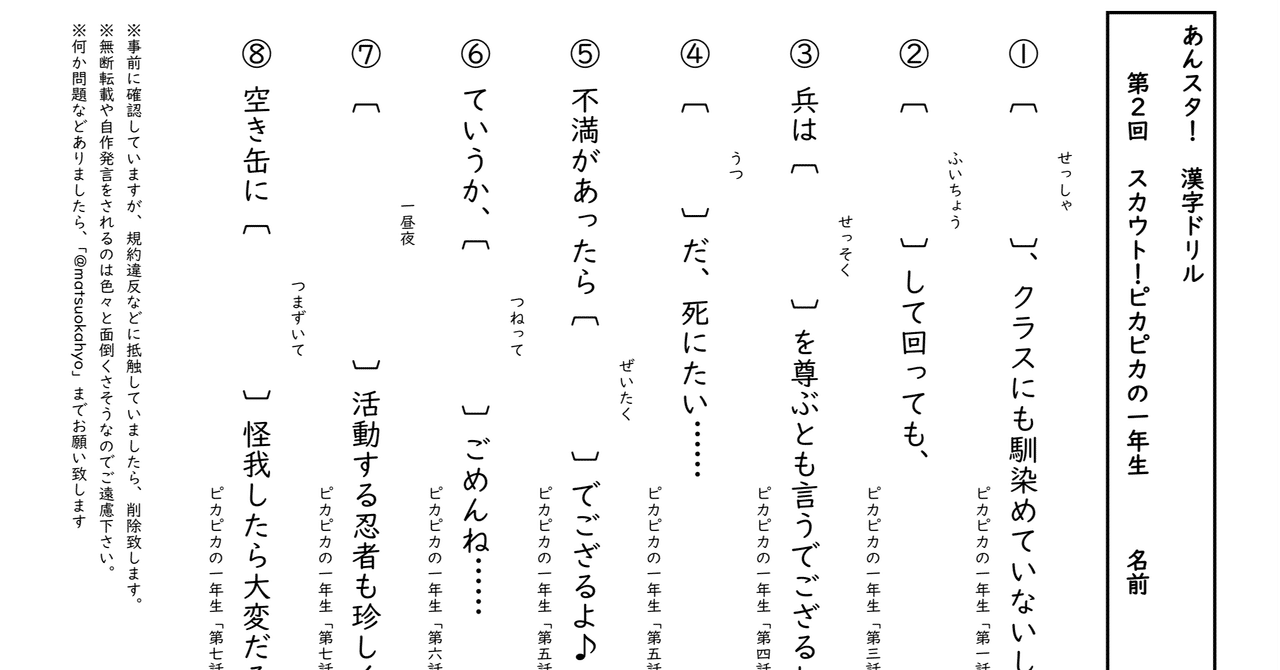 あんスタ！　漢字ドリル
第２回　スカウト！ピカピカの一年生　　名前
せっしゃ
①〔　　　〕、クラスにも馴染めていないし
ピカピカの一年生「第一話
ふいちょう
②〔　　　〕して回っても、
ピカピカの一年生「第三話
せっそく
③兵は〔　　　〕を尊ぶとも言うでござる
ピカピカの一年生「第四話
うつ
④〔　　　〕だ、死にたい……
ピカピカの一年生「第五話
ぜいたく
⑤不満があったら〔　　　〕でござるよ♪
ピカピカの一年生「第五話
つねって
⑥ていうか、〔　　　〕ごめんね……
ピカピカの一年生「第六話
一昼夜
⑦〔　　　〕活動する忍者も珍し
ピカピカの一年生「第七話
つまずいて
⑧空き缶に〔　　　〕怪我したら大変だ
ピカピカの一年生「第七話
※事前に確認していますが、規約違反などに抵触していましたら、削除致します。
※無断転載や自作発言をされるのは色々と面倒くさそうなのでご遠慮下さい。
※何か問題などありましたら、「@matsuokahyo」までお願い致します